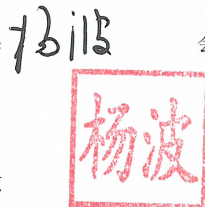 杨波
杨波